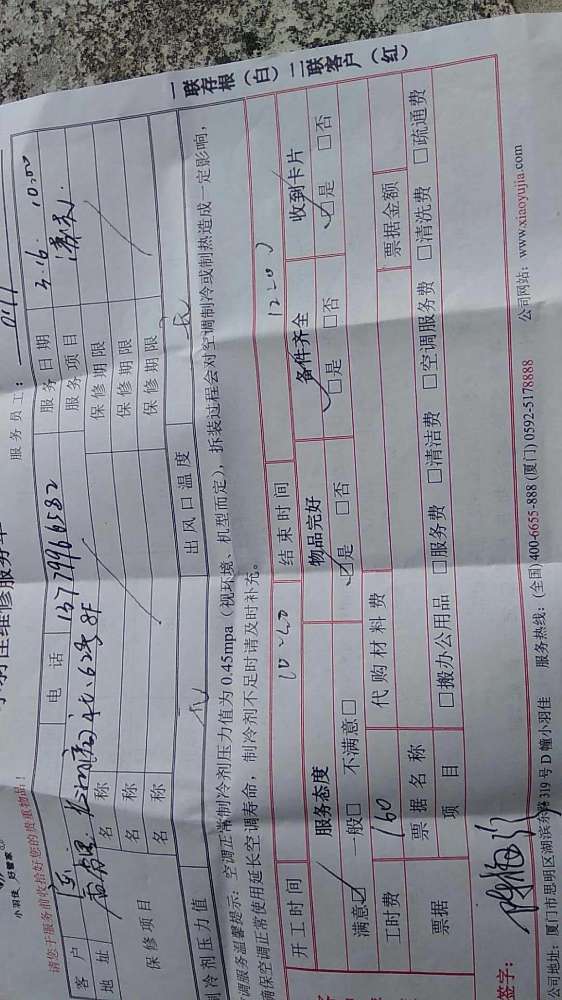 一联存根（白） 二联客户（红）
小羽佳 好管家
小羽佳维修服务单
请您于服务前收拾好您的贵重物品！
服务员工：
客户 电话 13779966582 服务日期 3.16. 10:00
地址 服务项目
保修项目 名称 保修期限
名称 保修期限
名称 保修期限
制冷剂压力值 出风口温度
空调服务温馨提示：空调正常制冷剂压力值为0.45mpa（视环境、机型而定），拆装过程会对空调制冷或制热造成一定影响，
确保空调正常使用延长空调寿命，制冷剂不足时请及时补充。
开工时间 10:00 结束时间 12:00
服务态度 物品完好 备件齐全 收到卡片
满意☑ 一般□ 不满意□ ☑是 □否 ☑是 □否 ☑是 □否
工时费 160 代购材料费
票据 票据名称 票据金额
项目 □搬办公用品 □服务费 □清洁费 □空调服务费 □清洗费 □疏通费
签字：
公司地址：厦门市思明区湖滨东路319号D幢小羽佳 服务热线：(全国)400-6655-888 (厦门) 0592-5178888 公司网站：www.xiaoyujia.com